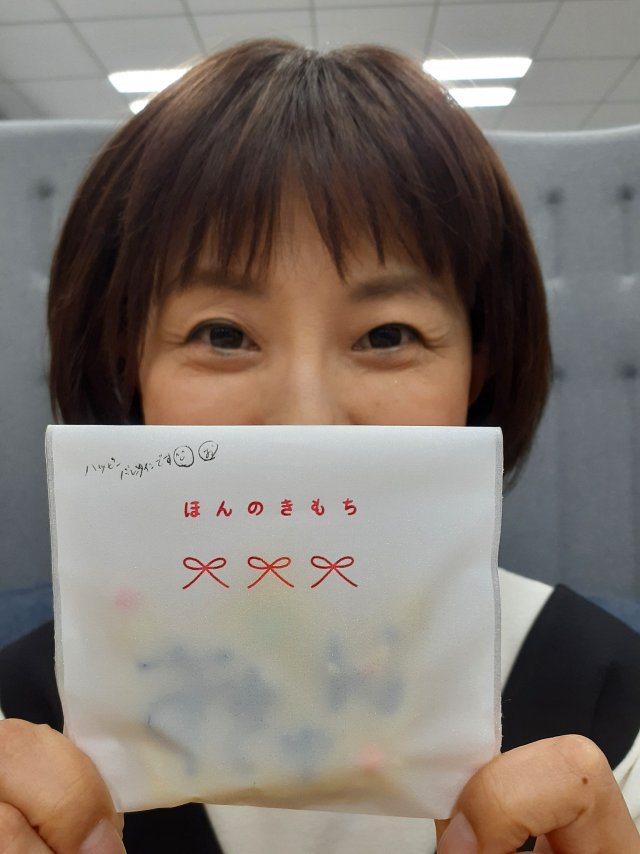 ハッピー
バレンタインです
ほんのきもち